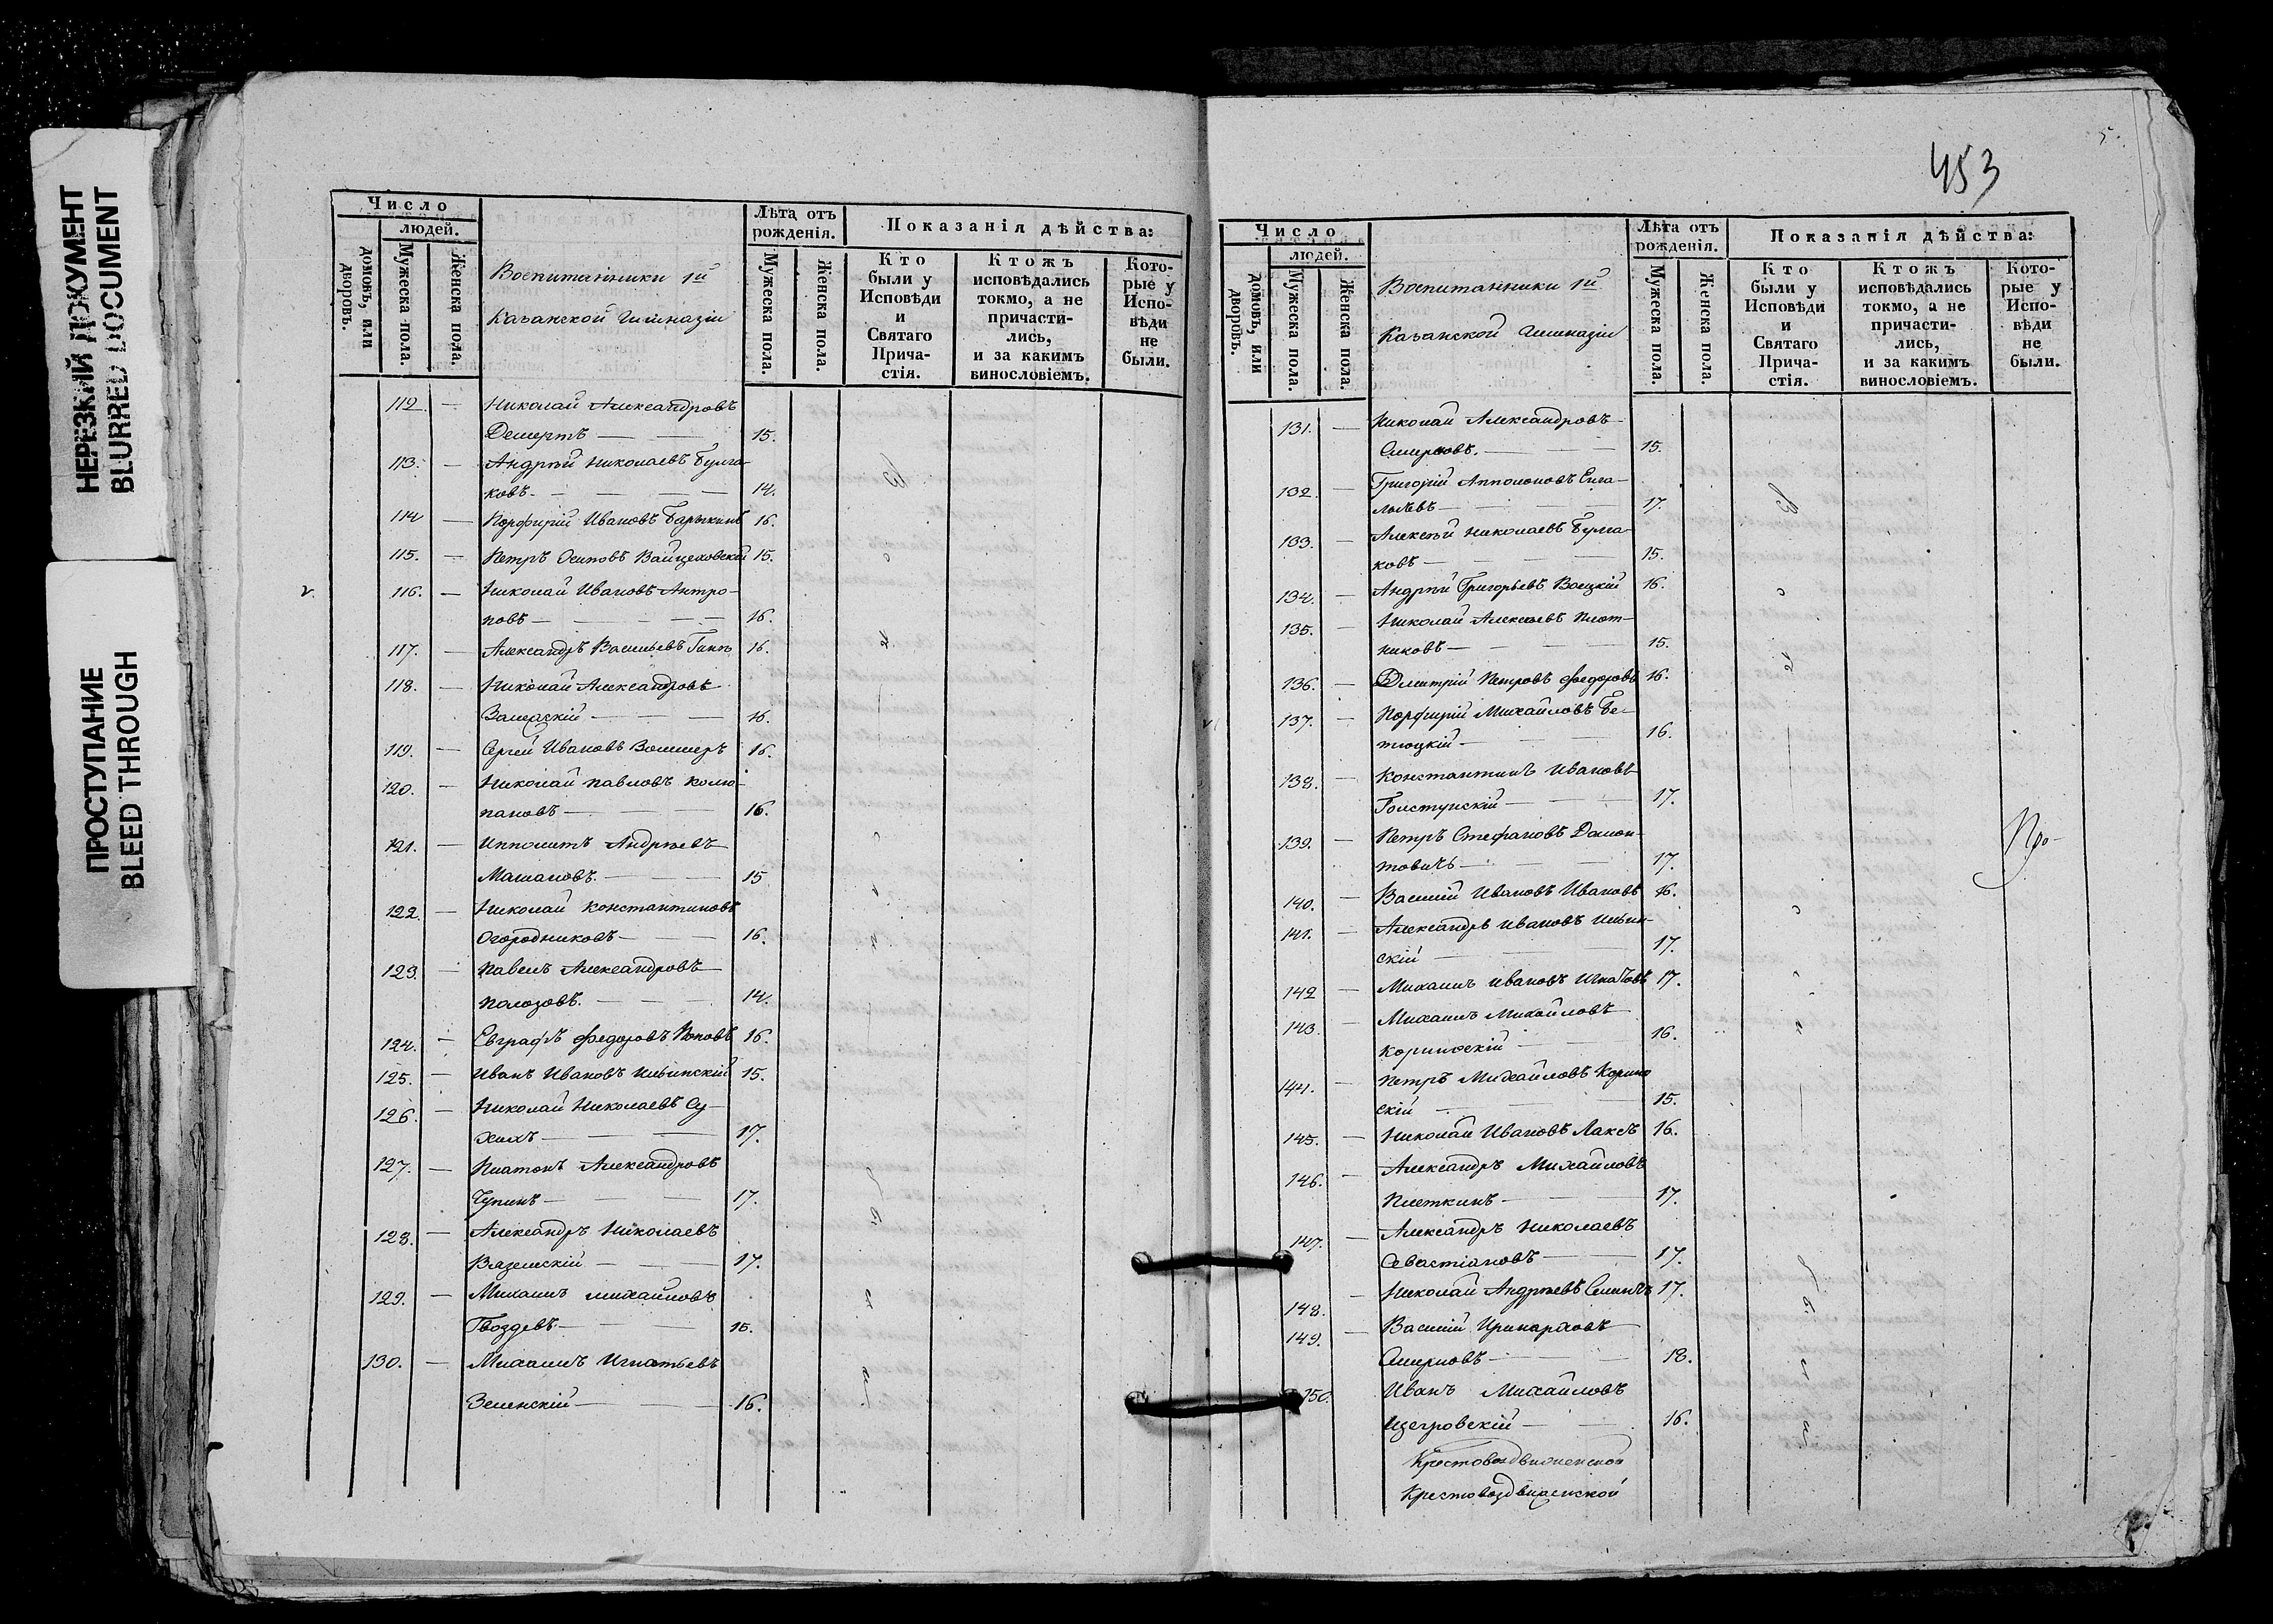 НЕРЕЗКИЙ ДОКУМЕНТ
BLURRED DOCUMENT
ПРОСТУПАНИЕ
BLEED THROUGH
Число
людей.
домовъ, или дворовъ.
Мужеска пола.
Женска пола.
Воспитанники 1й
Казанской Гимназіи
Лѣта отъ рожденія.
Мужеска пола.
Женска пола.
Показанія дѣйства:
Кто были у Исповѣди и Святаго Прича-стія.
Ктожъ исповѣдались токмо, а не причасти-лись, и за какимъ винословіемъ.
Кото-рые у Испо-вѣди не были.
112. — Николай Александровъ
Демертъ — — 15.
113. — Андрей Николаевъ Булга-
ковъ — — 14.
114 — Порфирій Ивановъ Барыкинъ 16.
115. — Петръ Осиповъ Войцеховскій 15.
116. — Николай Ивановъ Антро-
повъ — — 16.
117. — Александръ Васильевъ Гинъ 16.
118. — Николай Александровъ
16.
119. — Сергей Ивановъ 16.
120. — Николай Павловъ Колю-
пановъ — — 16.
121. — Ипполитъ Андреевъ
Машановъ — — 15
122. — Николай Константиновъ
Огородниковъ — — 16.
123. — Павелъ Александровъ
Полозовъ. — — 14.
124. — Евграфъ Федоровъ Поповъ 16.
125. — Иванъ Ивановъ Ильинскій 15.
126. — Николай Николаевъ Су-
17.
127. — Платонъ Александровъ
Чупинъ — — 17.
128. — Александръ Николаевъ
Вяземскій — — 17.
129. — Михаилъ Михайловъ
Гвоздевъ — — 15.
130. — Михаилъ Игнатьевъ
Зеленскій — — 16.
453
Число
людей.
домовъ, или дворовъ.
Мужеска пола.
Женска пола.
Воспитанники 1й
Казанской Гимназіи
Лѣта отъ рожденія.
Мужеска пола.
Женска пола.
Показанія дѣйства:
Кто были у Исповѣди и Святаго Прича-стія.
Ктожъ исповѣдались токмо, а не причасти-лись, и за какимъ винословіемъ.
Кото-рые у Испо-вѣди не были.
131. — Николай Александровъ
Смирновъ. — — 15.
132. — Григорій Аполоновъ Енга-
лычевъ — — 17.
133. — Алексей Николаевъ Булга-
ковъ — — 15.
134. — Андрей Григорьевъ Воецкій 16.
135. — Николай Алексеевъ Плот-
никовъ — — 15.
136. — Дмитрій Петровъ Федоровъ 16.
137. — Порфирій Михайловъ Бе-
тюцкій — — 16.
138. — Константинъ Ивановъ
Толстунскій — — 17.
139. — Петръ Стефановъ Домон-
товичъ — — 17.
140. — Василій Ивановъ Ивановъ 16.
141. — Александръ Ивановъ Ильин-
скій — — 17.
142 — Михаилъ Ивановъ 17.
143. — Михаилъ Михайловъ
Коринфскій — — 16.
144. — Петръ Михайловъ Коринф
скій — — 15.
145. — Николай Ивановъ Лаксъ 16.
146. — Александръ Михайловъ
Плеткинъ — — 17.
147. — Александръ Николаевъ
Севастіановъ — — 17.
148. — Николай Андреевъ 17.
149. — Василій Иринарховъ
Смирновъ — — 18.
150. Иванъ Михайловъ
Щегровскій — — 16.
Крестовоздвиженской
Крестовоздвиженской
Про-